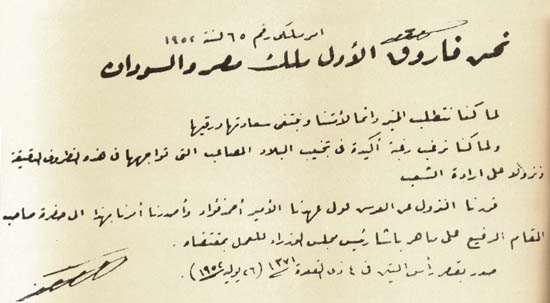 امر ملكى رقم ٦٥ لسنة ١٩٥٢
نحن فاروق الأول ملك مصر والسودان
لما كنا نتطلب الخير دائما لأمتنا ونبتغى سعادتها ورقيها
ولما كنا نرغب رغبة أكيدة فى تجنيب البلاد المصاعب التى تواجهها فى هذه الظروف الدقيقة
ونزولا على ارادة الشعب
قررنا النزول عن العرش لولى عهدنا الأمير أحمد فؤاد وأصدرنا أمرنا بهذا الى حضرة صاحب
المقام الرفيع على ماهر باشا رئيس مجلس الوزراء للعمل بمقتضاه.
صدر بقصر رأس التين فى ٤ ذى القعدة ١٣٧١ (٢٦ يوليه ١٩٥٢)